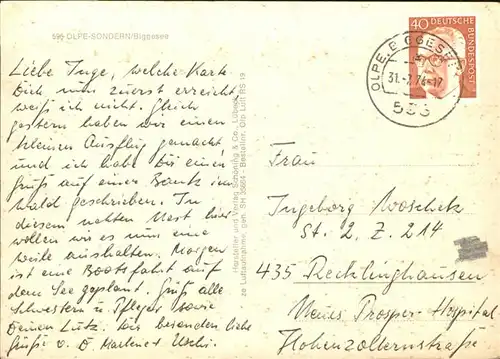 595 OLPE-SONDERN/Biggesee
Liebe Inge, welche Karte
Dich nun zuerst erreicht,
weiß ich nicht. Gleich
gestern haben wir einen
kleinen Ausflug gemacht
und ich habe Dir einen
Gruß auf einer Bank im
Wald geschrieben. In
diesem netten Nest hier
wollen wir es nun eine
Weile aushalten. Morgen
ist eine Bootsfahrt auf
dem See geplant. Grüß alle
Schwestern u. Pfleger sowie
Deinen Lutz. Dir besonders liebe
Grüße v. D. Uschi.
Hersteller und Verlag Schöning & Co., Lübeck
Luftaufnahme, gen. SH - Bestellnr. Olp Luft RS 19
OLPE, BIGGESEE
31.-7.74-17
40 DEUTSCHE
BUNDESPOST
Frau
Ingeborg Woschek
St. 2, Z. 214
435 Recklinghausen
Neues Prosper-Hospital
Hohenzollernstraße